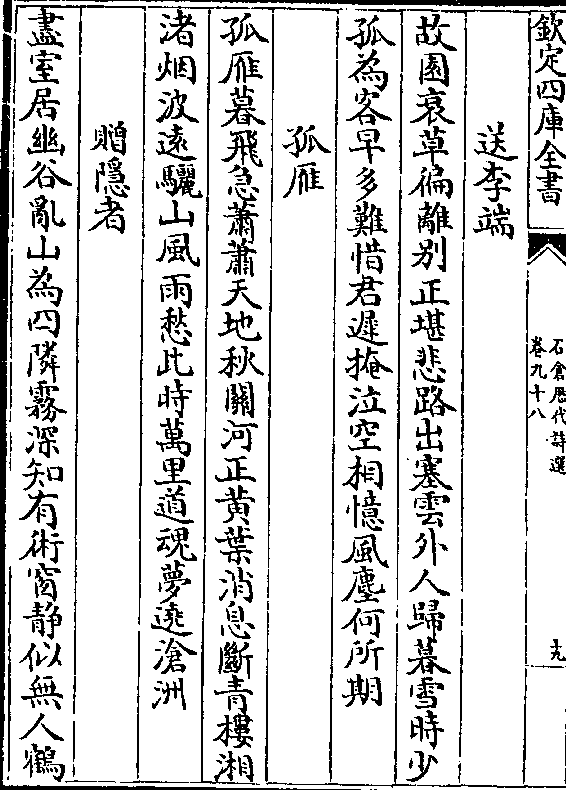 欽定四庫全書
石倉歷代詩選
卷九十八
十九
送李端
故園衰草徧離別正堪悲路出塞雲外人歸暮雪時少
孤為客早多難惜君遲掩泣空相憶風塵何所期
孤雁
孤雁暮飛急蕭蕭天地秋關河正黄葉消息斷青樓湘
渚烟波遠驪山風雨愁此時萬里道魂夢遶滄洲
贈隱者
盡室居幽谷亂山為四隣霧深知有術窗静似無人鶴